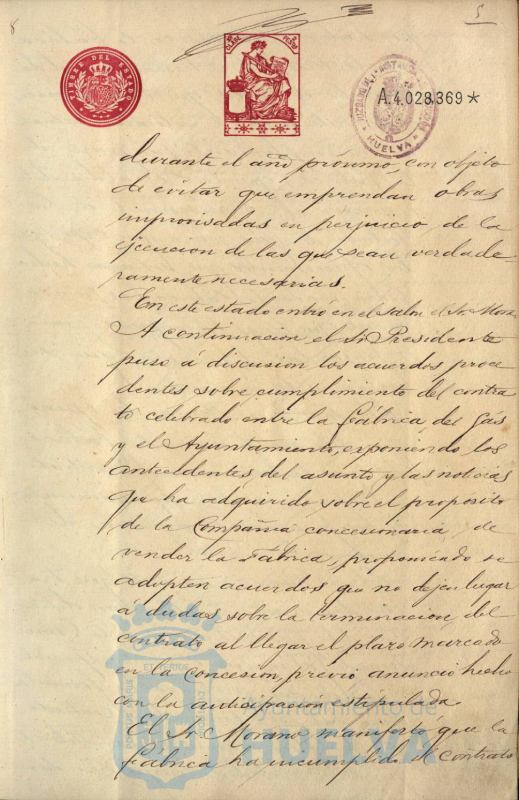 8
5
TIMBRE DEL ESTADO
CLASE
PESO
A.4.028.369*
HUELVA
durante el año próximo, con objeto
de evitar que emprendan obras
improvisadas en perjuicio de la
ejecucion de las que sean verdade-
ramente necesarias.
En este estado entró en el salon el Sr. Mora
A continuacion el Sr Presidente
puso á discusion los acuerdos proce
dentes sobre cumplimiento del contra
to celebrado entre la Fábrica del Gás
y el Ayuntamiento, exponiendo los
antecedentes del asunto y las noticias
que ha adquirido sobre el proposito
de la Compañia concesionaria, de
vender la Fábrica, proponiendo se
adopten acuerdos que no dejen lugar
á dudas sobre la terminacion del
contrato al llegar el plazo marcado
en la concesion, previo anuncio hecho
con la anticipacion estipulada.
El Sr Morano manifestó, que la
Fábrica ha incumplido el contrato
Ayuntamiento de
HUELVA